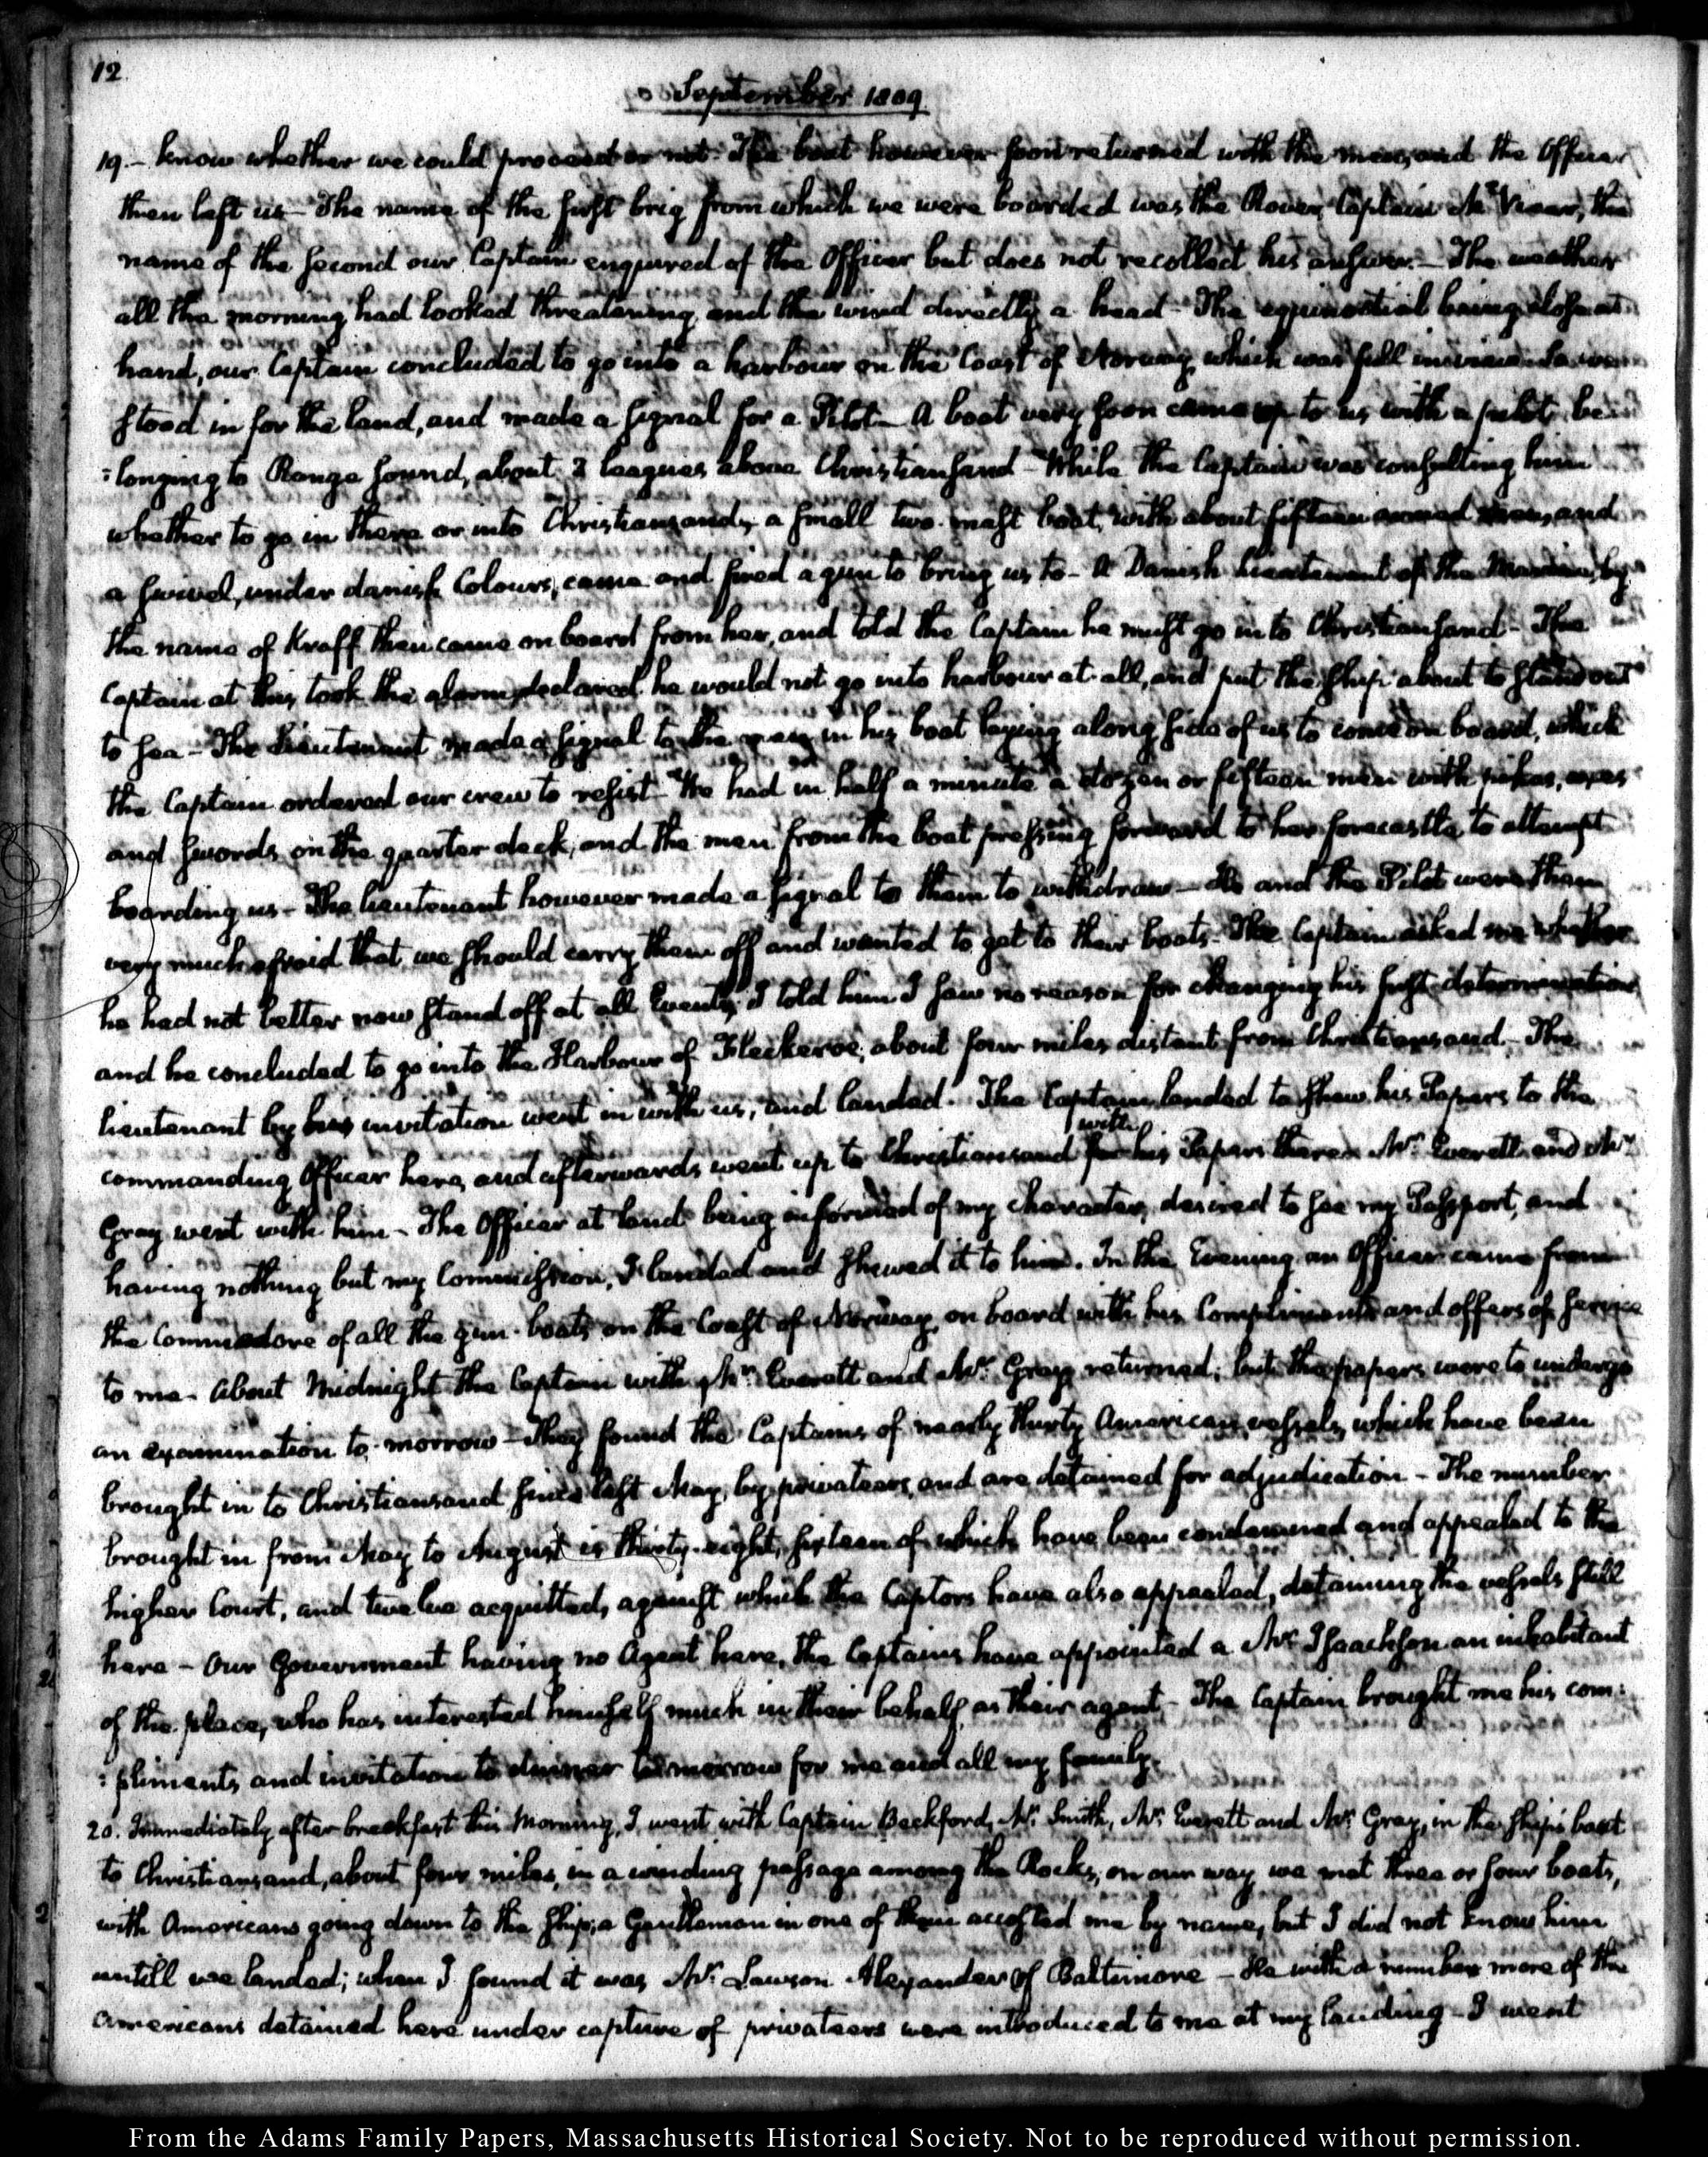 12
September 1809
19.- know whether we could proceed or not. The boat however soon returned with the men, and the Officer
then left us - The name of the first brig from which we were boarded was the Rover, Captain McVicar, the
name of the second our Captain enquired of the Officer but does not recollect his answer. - The weather
all the morning had looked threatening, and the wind directly a head - The equinoctial being close at
hand, our Captain concluded to go into a harbour on the Coast of Norway, which was full in view. So we
stood in for the land, and made a signal for a Pilot - A boat very soon came up to us with a pilot, be
:longing to Range sound, about 2 leagues above Christiansand - While the Captain was consulting him
whether to go in there or into Christiansand, a small two-mast boat, with about fifteen armed men, and
a swivel, under danish Colours, came and fired a gun to bring us to - A Danish Lieutenant of the Marine, by
the name of Kraff then came on board from her, and told the Captain he must go into Christiansand - The
Captain at this took the alarm, declared he would not go into harbour at all, and put the ship about to stand out
to sea - The Lieutenant made a signal to the men in his boat laying along side of us to come on board, which
the Captain ordered our crew to resist - We had in half a minute a dozen or fifteen men with pikes, axes
and swords on the quarter deck, and the men from the boat pressing forward to her forecastle to attempt
boarding us - The lieutenant however made a signal to them to withdraw - He and the Pilot were then
very much afraid that we should carry them off and wanted to get to their boats. The Captain asked me whether
he had not better now stand off at all Events, I told him I saw no reason for changing his first determination
and he concluded to go into the Harbour of Fleckeroe, about four miles distant from Christiansand - The
lieutenant by his invitation went in with us, and landed. The Captain landed to shew his Papers to the
commanding Officer here, and afterwards went up to Christiansand with his Papers there. Mr. Everett and Mr.
Gray went with him - The Officer at land being informed of my character, desired to see my Passport, and
having nothing but my Commission, I landed and shewed it to him. In the Evening an Officer came from
the Commodore of all the gun-boats on the Coast of Norway, on board with his Compliments and offers of service
to me. About Midnight the Captain with Mr. Everett and Mr. Gray returned; but the papers were to undergo
an examination to-morrow - They found the Captains of nearly thirty American vessels, which have been
brought in to Christiansand since last May, by privateers, and are detained for adjudication - The number
brought in from May to August is thirty-eight, sixteen of which have been condemned and appealed to the
higher Court, and twelve acquitted, against which the Captors have also appealed, detaining the vessels still
here - Our Government having no Agent here, the Captains have appointed a Mr. Isaackson an inhabitant
of the place, who has interested himself much in their behalf, as their agent - The Captain brought me his com:
:pliments and invitation to dinner tomorrow for me and all my family.
20. Immediately after breakfast this Morning, I went with Captain Beckford, Mr. Smith, Mr. Everett and Mr. Gray, in the ship's boat
to Christiansand, about four miles, in a winding passage among the Rocks; on our way we met three or four boats,
with Americans going down to the ship; a Gentleman in one of them accosted me by name, but I did not know him
untill we landed; when I found it was Mr. Lawson Alexander of Baltimore - He with a number more of the
Americans detained here under capture of privateers were introduced to me at my landing - I went
From the Adams Family Papers, Massachusetts Historical Society. Not to be reproduced without permission.